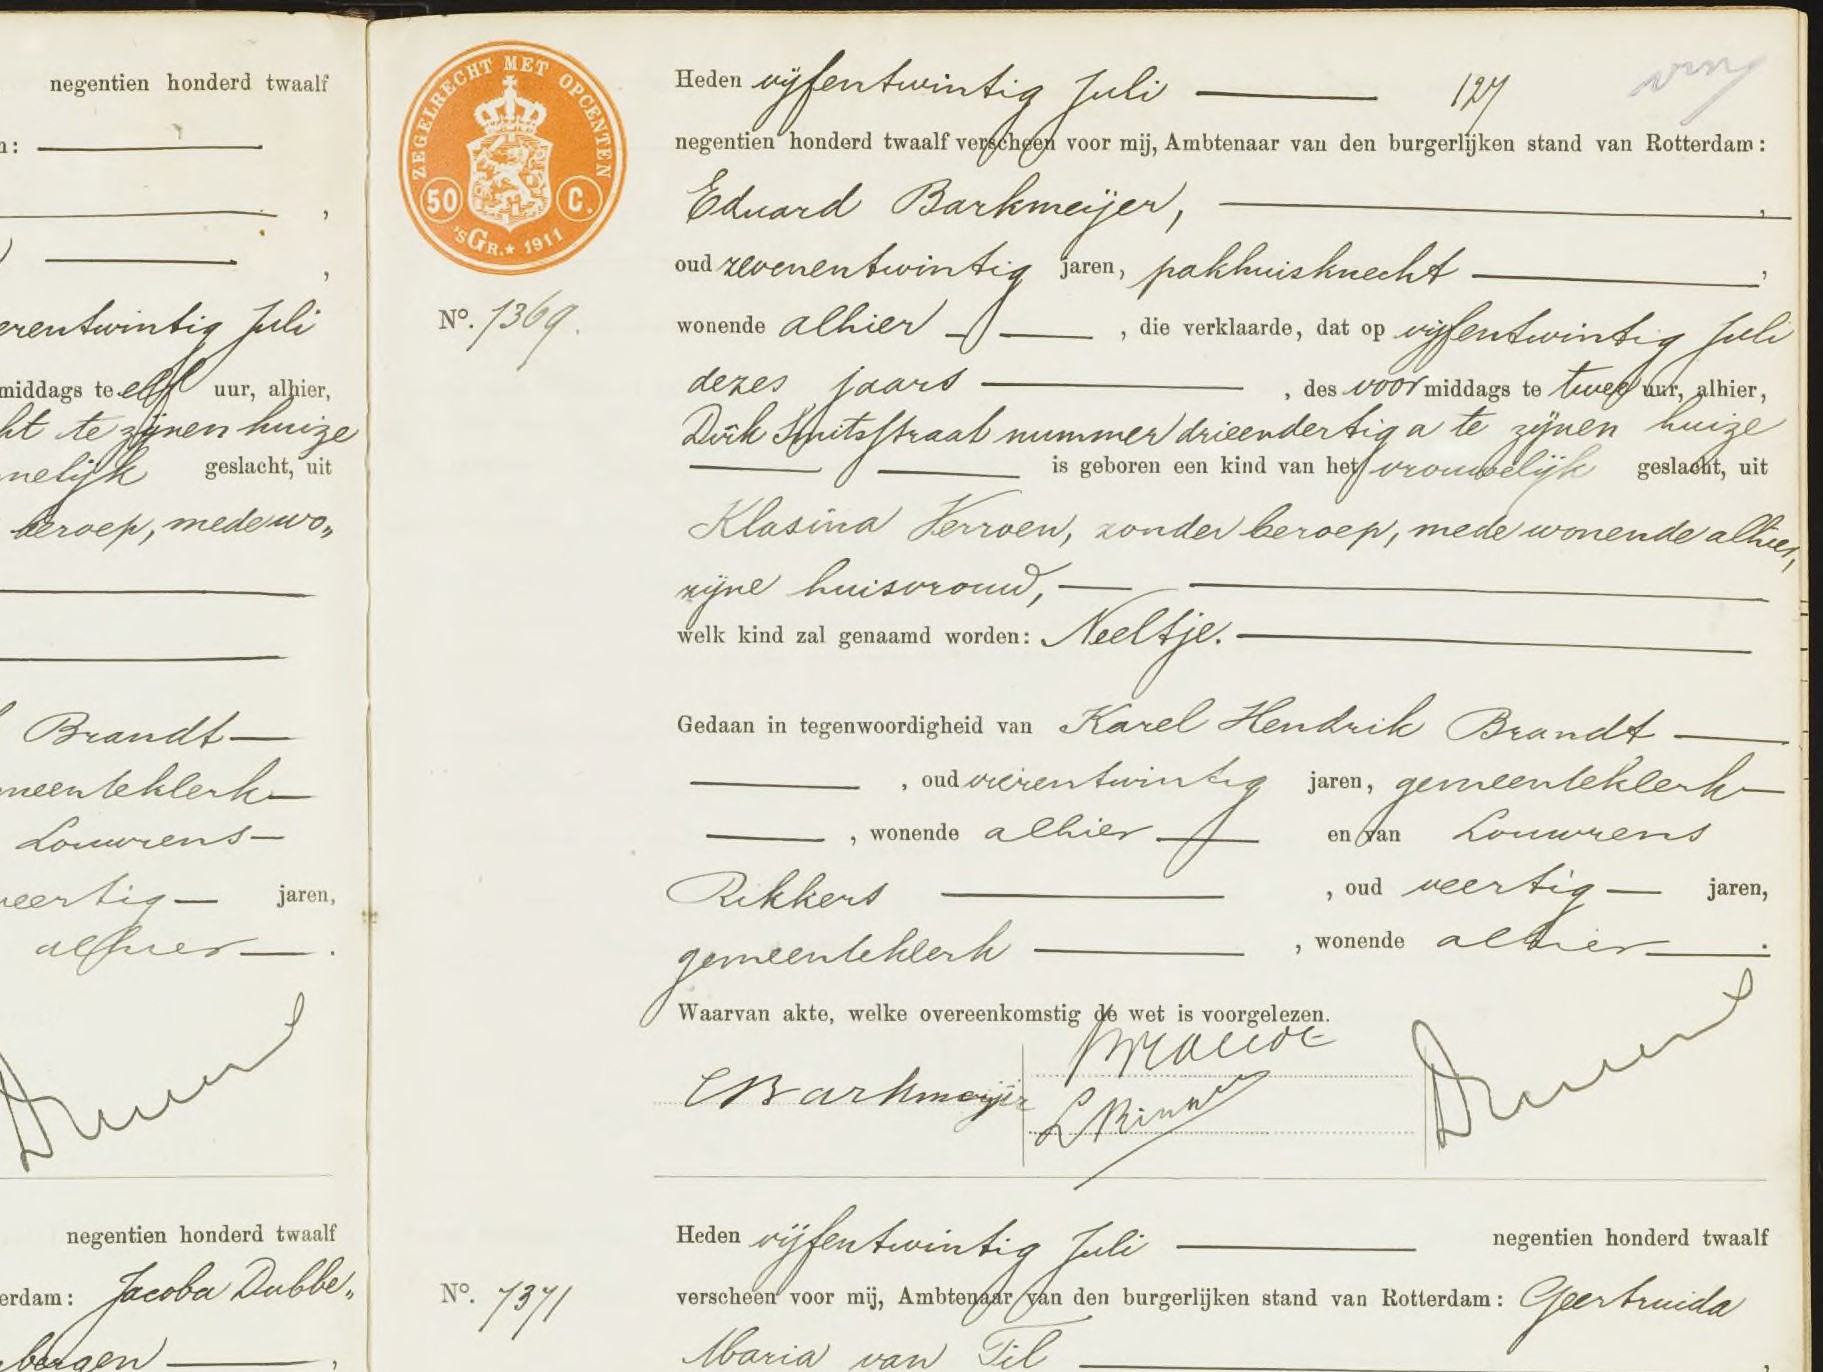 negentien honderd twaalf
erentwintig Juli
middags te elf uur, alhier,
ht te zijnen huize
nelijk geslacht, uit
beroep, medewo„
Brandt
meenteklerk
Louwrens
veertig jaren,
alhier.
negentien honderd twaalf
erdam: Jacoba Dubbe„
bergen
ZEGELRECHT MET OPCENTEN
50 C.
'sGR. ★ 1911
Heden vijfentwintig Juli 127
negentien honderd twaalf verscheen voor mij, Ambtenaar van den burgerlijken stand van Rotterdam:
Eduard Barkmeijer,
oud zevenentwintig jaren, pakhuisknecht,
No. 1369.
wonende alhier, die verklaarde, dat op vijfentwintig Juli
dezes jaars, des voormiddags te twee uur, alhier,
Dirk Smitsstraat nummer drieendertig a te zijnen huize
is geboren een kind van het vrouwelijk geslacht, uit
Klasina Verroen, zonder beroep, mede wonende alhier,
zijne huisvrouw,
welk kind zal genaamd worden: Neeltje.
Gedaan in tegenwoordigheid van Karel Hendrik Brandt
, oud vierentwintig jaren, gemeenteklerk
, wonende alhier en van Louwrens
Rikkers, oud veertig jaren,
gemeenteklerk, wonende alhier.
Waarvan akte, welke overeenkomstig de wet is voorgelezen.
Brandt
EBarkmeijer
Heden vijfentwintig Juli negentien honderd twaalf
No. 1371
verscheen voor mij, Ambtenaar van den burgerlijken stand van Rotterdam: Geertruida
Maria van Til